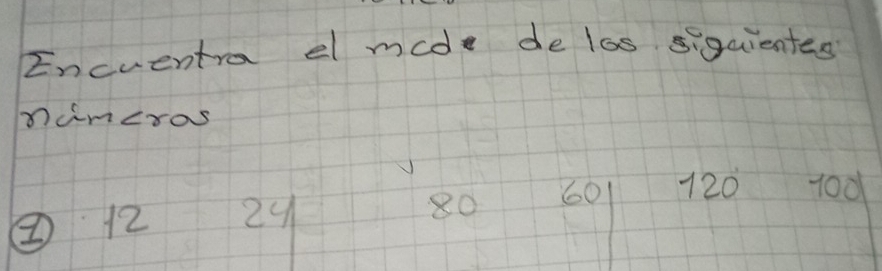 Encuentra el mcd de los siguientes
números
① 12 24| 80 60| 120 100|